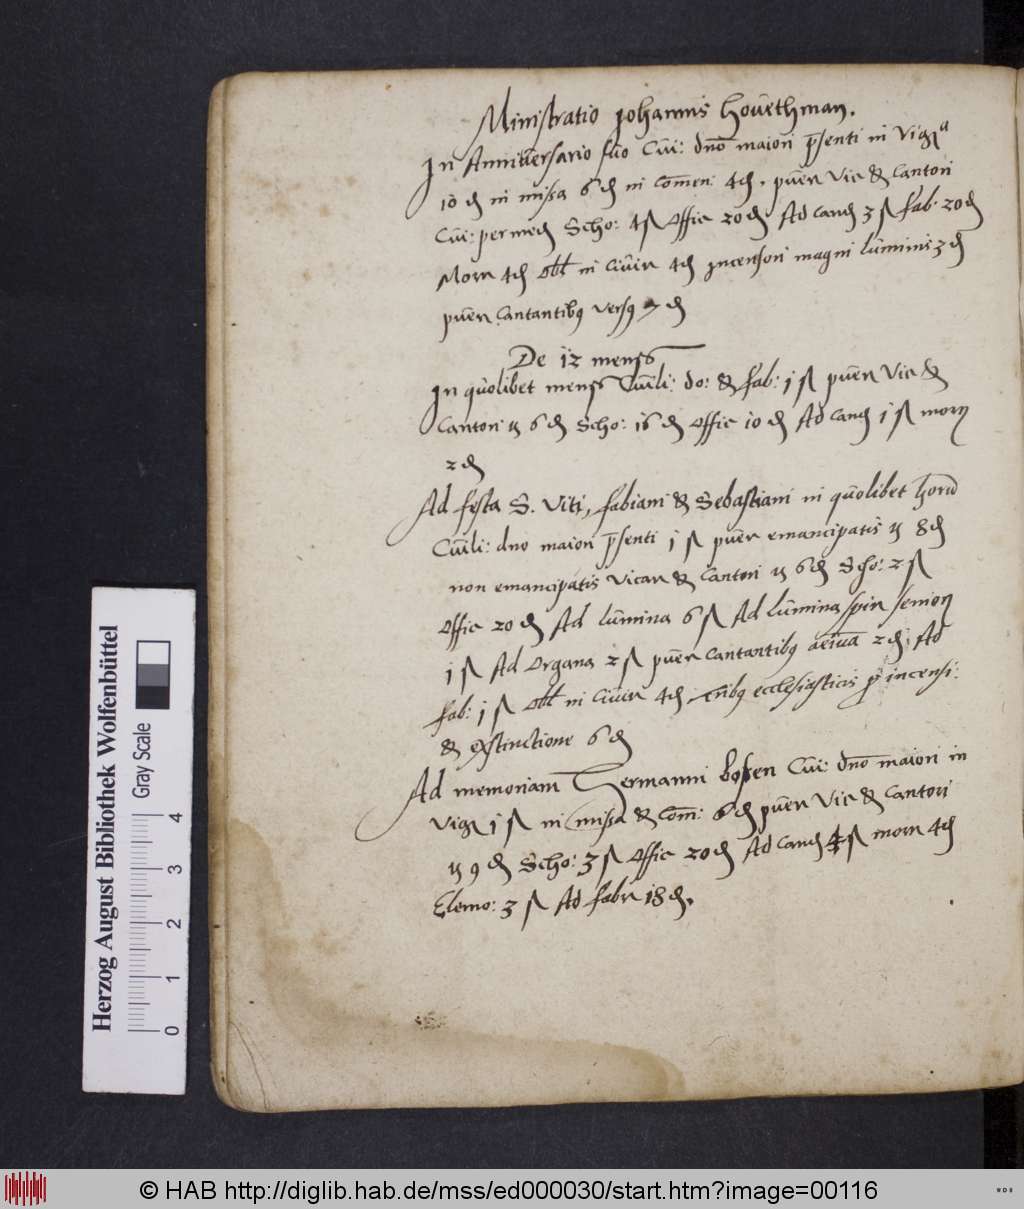 Ministratio Johannis Hovethman.
In Anniversario suo Cui: dno maiori psenti in Vigª
10 d in missa 6 d in comen: 4 d. puer Vic & Cantori
Cui: per med Scho: 4 ß Offic 20 d Ad cand 3 ß fab. 20 d
Morn 4 d obl in Civir 4 d Incensori magni luminis 3 d
puer cantantibq versq 2 d
De 12 menss
In quolibet menss Cuili: do: & fab: 1 ß puer Vic &
Cantori 6 d Scho: 16 d Offic 10 d Ad cand 1 ß morn
2 d
Ad festa S. Viti, fabiani & Sebastiani in quolibet horu
Cuili: dno maiori psenti 1 ß puer emancipatis 8 d
non emancipatis Vicar & Cantori 6 d Scho: 2 ß
Offic 20 d Ad lumina 6 ß Ad lumina senior
1 ß Ad Organa 2 ß puer cantantibq 2 d. Ad
fab: 1 ß obl in Civir 4 d ecclesiasticis p incensi:
& exstinctione 6 d
Ad memoriam Hermanni bosen Cui: dno maiori in
Vig 1 ß in missa & Com: 6 d puer Vic & Cantori
9 d Scho: 3 ß Offic 20 d Ad cand 4 ß morn 4 d
Elemo: 3 ß Ad fabr 18 d.
Herzog August Bibliothek Wolfenbüttel
Gray Scale
0 1 2 3 4
© HAB http://diglib.hab.de/mss/ed000030/start.htm?image=00116